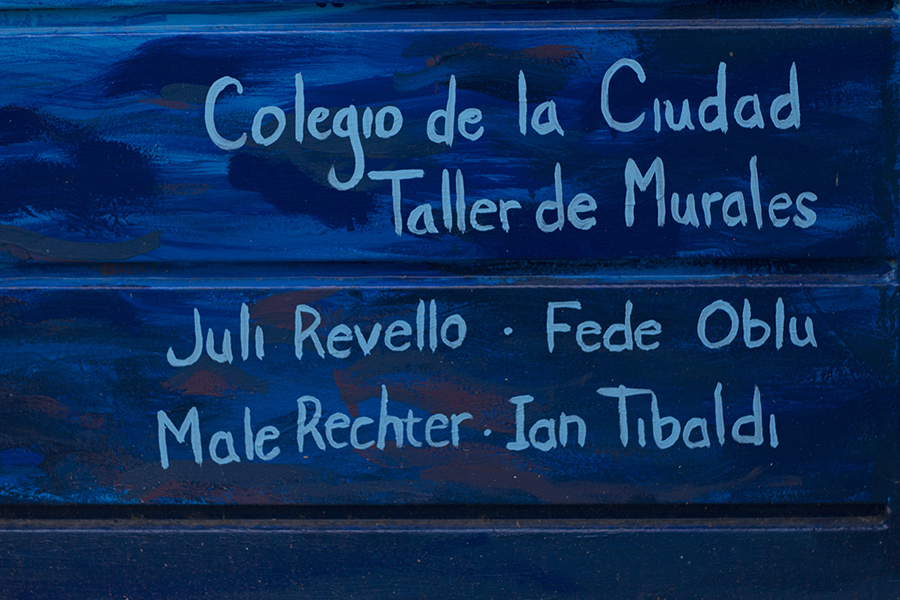 Colegio de la Ciudad
Taller de Murales
Juli Revello · Fede Oblu
Male Rechter · Ian Tibaldi